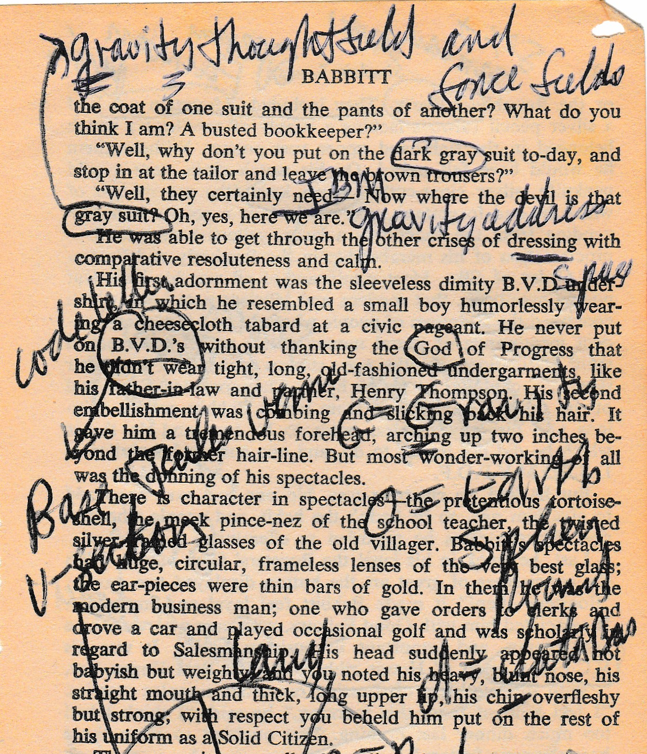 gravity thought fields and
force fields
BABBITT
the coat of one suit and the pants of another? What do you
think I am? A busted bookkeeper?"
"Well, why don't you put on the dark gray suit to-day, and
stop in at the tailor and leave the brown trousers?"
"Well, they certainly need— Now where the devil is that
IBM
gray suit? Oh, yes, here we are."
gravity address
He was able to get through the other crises of dressing with
comparative resoluteness and calm.
spies
His first adornment was the sleeveless dimity B.V.D. under-
shirt, in which he resembled a small boy humorlessly wear-
ing a cheesecloth tabard at a civic pageant. He never put
code letter
on B.V.D.'s without thanking the God of Progress that
he didn't wear tight, long, old-fashioned undergarments, like
his father-in-law and partner, Henry Thompson. His second
embellishment was combing and slicking back his hair. It
G= Gravity
gave him a tremendous forehead, arching up two inches be-
yond the former hair-line. But most wonder-working of all
was the donning of his spectacles.
Base
V-
O= Earth
There is character in spectacles—the pretentious tortoise-
shell, the meek pince-nez of the school teacher, the twisted
silver-framed glasses of the old villager. Babbitt's spectacles
had huge, circular, frameless lenses of the very best glass;
the ear-pieces were thin bars of gold. In them he was the
modern business man; one who gave orders to clerks and
drove a car and played occasional golf and was scholarly in
regard to Salesmanship. His head suddenly appeared not
babyish but weighty, and you noted his heavy, blunt nose, his
straight mouth and thick, long upper lip, his chin overfleshy
but strong; with respect you beheld him put on the rest of
his uniform as a Solid Citizen.